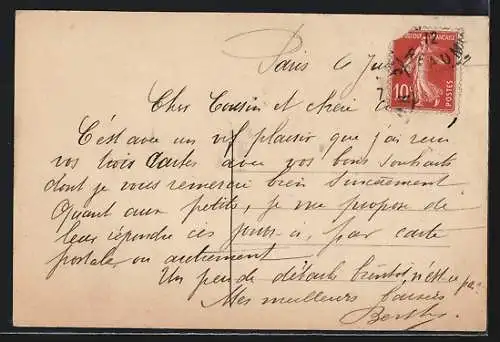 Paris 6
RÉPUBLIQUE FRANÇAISE
10c
POSTES
Cher Cousin et chère
C'est avec un vif plaisir que j'ai reçu
vos trois cartes avec vos bons souhaits
dont je vous remercie bien sincèrement
Quant aux petits, je me propose de
leur répondre ces jours ci, par carte
postale ou autrement
Un peu de détails bientôt n'est ce pas
Mes meilleurs baisers
Berthe